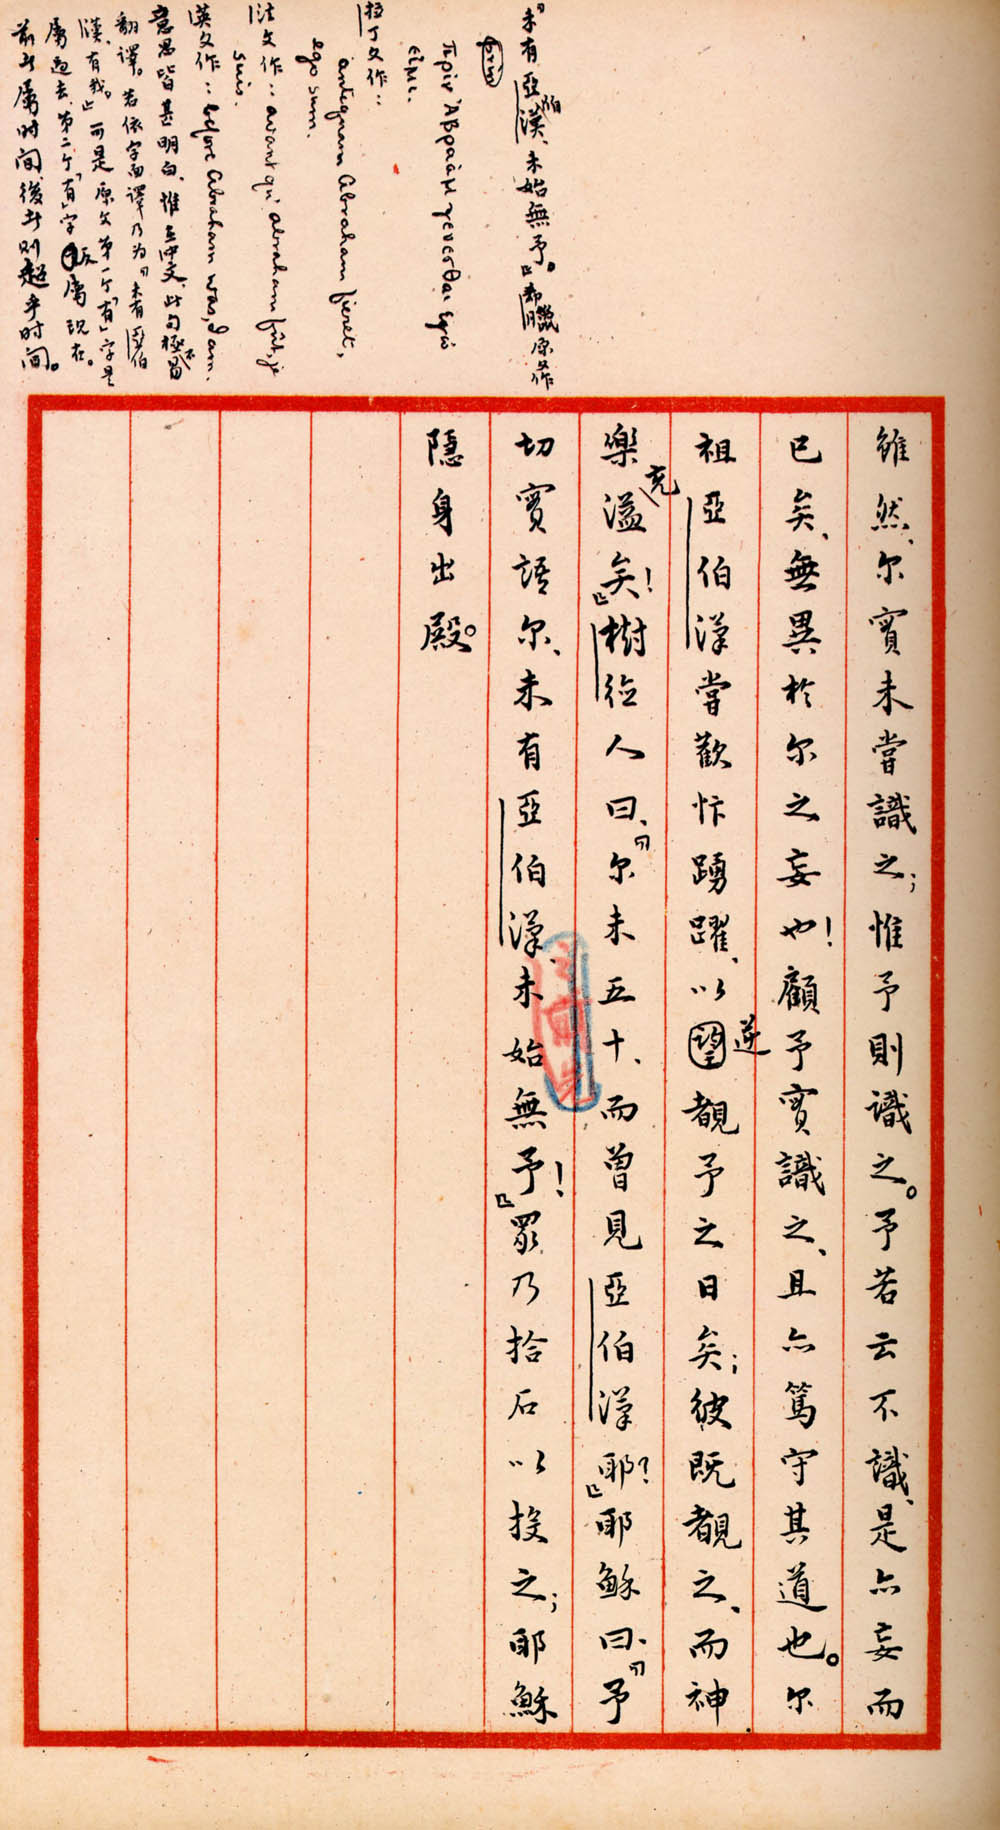 「未有亞伯漢、未始無予。」希臘原文作
πρὶν Ἀβραὰμ γενεσθαι Egώ
εἰμι.
拉丁文作：
antequam Abraham fieret,
ego sum.
法文作：avant qu' abraham fût, je
suis.
英文作：before Abraham was, I am.
意思皆甚明白，惟在中文，此句極不易
翻譯。若依字面譯乃为「未有亞伯
漢，有我。」可是原文第一个「有」字是
屬過去，第二个「有」字反屬現在。
前者屬时间，後者則超乎时间。
雖然、尔實未嘗識之；惟予則識之。予若云不識、是亦妄而
已矣、無異於尔之妄也！顧予實識之、且亦篤守其道也。尔
祖亞伯漢嘗歡忭踴躍、以望逆覩予之日矣；彼既覩之、而神
樂充溢矣！』樹德人曰、『尔未五十、而曾見亞伯漢耶？』耶穌曰、『予
切實語尔、未有亞伯漢、未始無予！』眾乃拾石以投之；耶穌
隱身出殿。